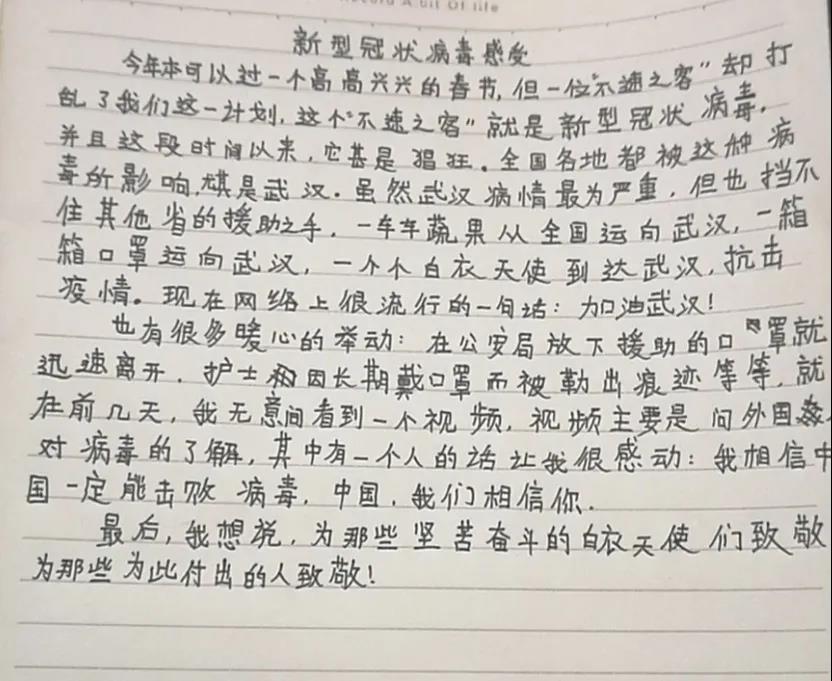 Record A bit Of life
新型冠状病毒感受
今年本可以过一个高高兴兴的春节,但一位“不速之客”却打
乱了我们这一计划,这个“不速之客”就是新型冠状病毒.
并且这段时间以来,它甚是猖狂.全国各地都被这种病
毒所影响,尤其是武汉.虽然武汉病情最为严重,但也挡不
住其他省的援助之手,一车车蔬果从全国运向武汉,一箱
箱口罩运向武汉,一个个白衣天使到达武汉,抗击
疫情。现在网络上很流行的一句话:加油武汉!
也有很多暖心的举动:在公安局放下援助的口罩就
迅速离开.护士们因长期戴口罩而被勒出痕迹等等,就
在前几天,我无意间看到一个视频,视频主要是问外国
对病毒的了解,其中有一个人的话让我很感动:我相信中
国一定能击败病毒.中国,我们相信你.
最后,我想说,为那些坚苦奋斗的白衣天使们致敬
为那些为此付出的人致敬!